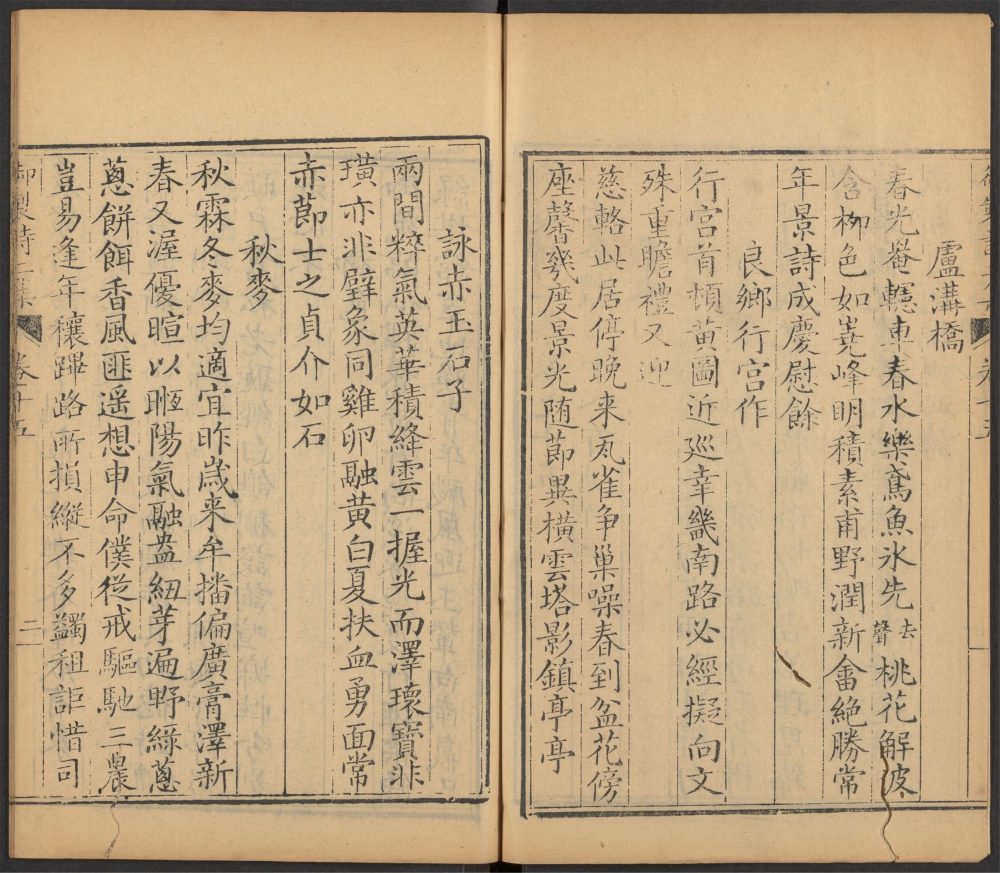 盧溝橋
春光菴䡾車春水樂鳶魚氷先去聲桃花解波
含柳色如嶤峰明積素甫野潤新畬絶勝常
年景詩成慶慰餘
良鄉行宮作
行宮首頓黃圖近巡幸畿南路必經擬向文
殊重瞻禮又迎
慈輅此居停晚来瓦雀争巢噪春到盆花傍
座馨幾度景光随節異橫雲塔影鎮亭亭
詠赤玉石子
兩間粹氣英華積絳雲一握光而澤瓌寶非
璜亦非璧象同雞卵融黃白夏扶血勇面常
赤節士之貞介如石
秋麥
秋霖冬麥均適宜昨歲来牟播偏廣膏澤新
春又渥優暄以晅陽氣融盎紐芽遍野綠蔥
蔥餅餌香風匪遥想申命僕從戒驅馳三農
豈易逢年穰蹕路所損縱不多蠲租詎惜司
御製詩二集
卷十五
二